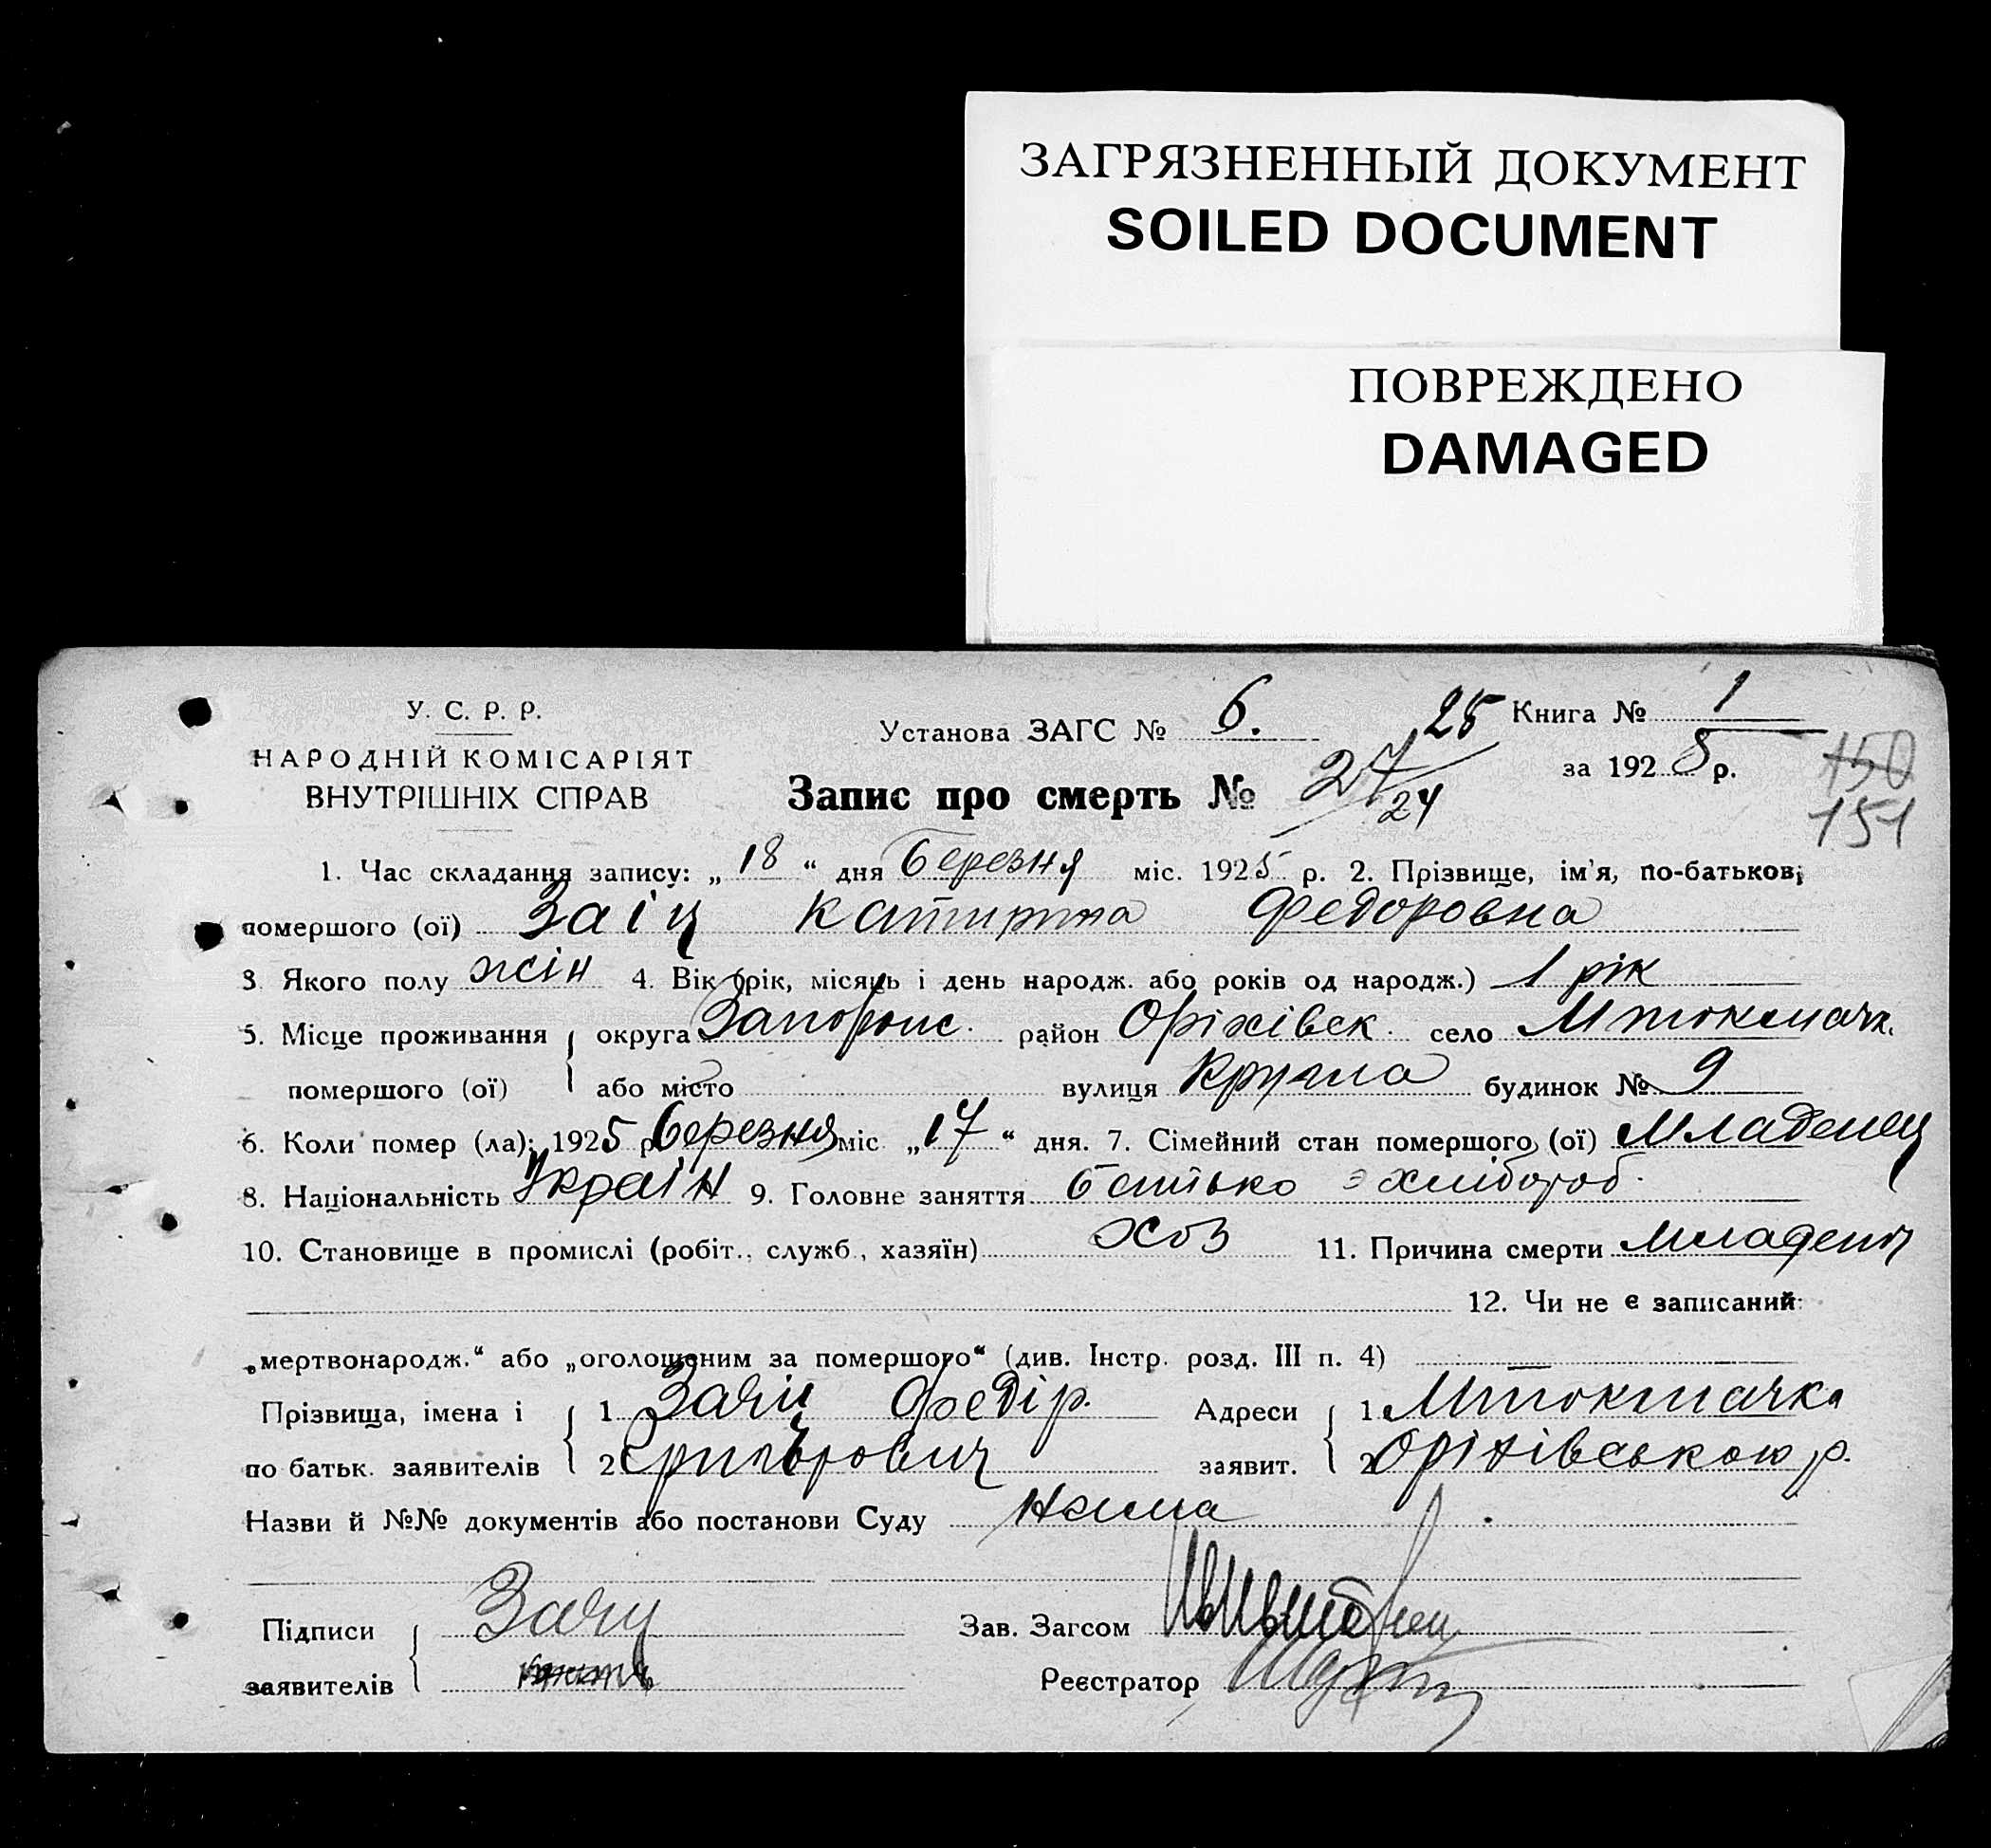 ЗАГРЯЗНЕННЫЙ ДОКУМЕНТ
SOILED DOCUMENT
ПОВРЕЖДЕНО
DAMAGED
У. С. Р. Р.
НАРОДНІЙ КОМІСАРІЯТ
ВНУТРІШНІХ СПРАВ
Установа ЗАГС № 6.
25 Книга № 1
за 1925 р.
150
151
Запис про смерть № 27/24
1. Час складання запису: „18“ дня березня міс. 1925 р. 2. Прізвище, ім'я, по-батькові
помершого (ої) Заіц Катирина Федоровна
3. Якого полу жін 4. Вік (рік, місяць і день народж. або років од народж.) 1 рік
5. Місце проживання округа Запоріж. район Оріхівск. село Мтокмачк.
помершого (ої) або місто вулиця будинок № 9
6. Коли помер (ла): 1925 р березня міс „17“ дня. 7. Сімейний стан помершого (ої) Младенец
8. Національність Україн 9. Головне заняття батько хлібороб.
10. Становище в промислі (робіт., служб., хазяїн) хоз 11. Причина смерти младенч
12. Чи не є записаний:
„мертвонародж.“ або „оголошеним за помершого“ (див. Інстр. розд. III п. 4) —
Прізвища, імена і 1 Заяц Федір. Адреси 1 Мтокмачка
по батьк. заявителів 2 Григорович заявит. 2 Оріхівською р.
Назви й №№ документів або постанови Суду нема
Підписи Заяц Зав. Загсом
заявителів Реєстратор